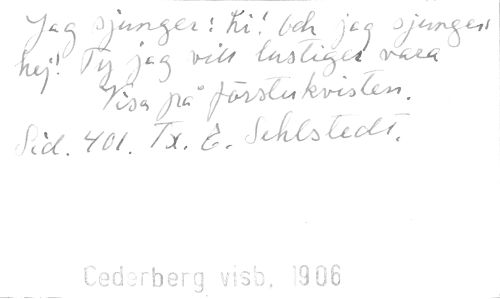 Jag sjunger: hi! och jag sjunger:
hej! Ty jag vill lustiger vara
Visa på förstukvisten.
Sid. 401. Tx. E. Sehlstedt.
Cederberg visb. 1906